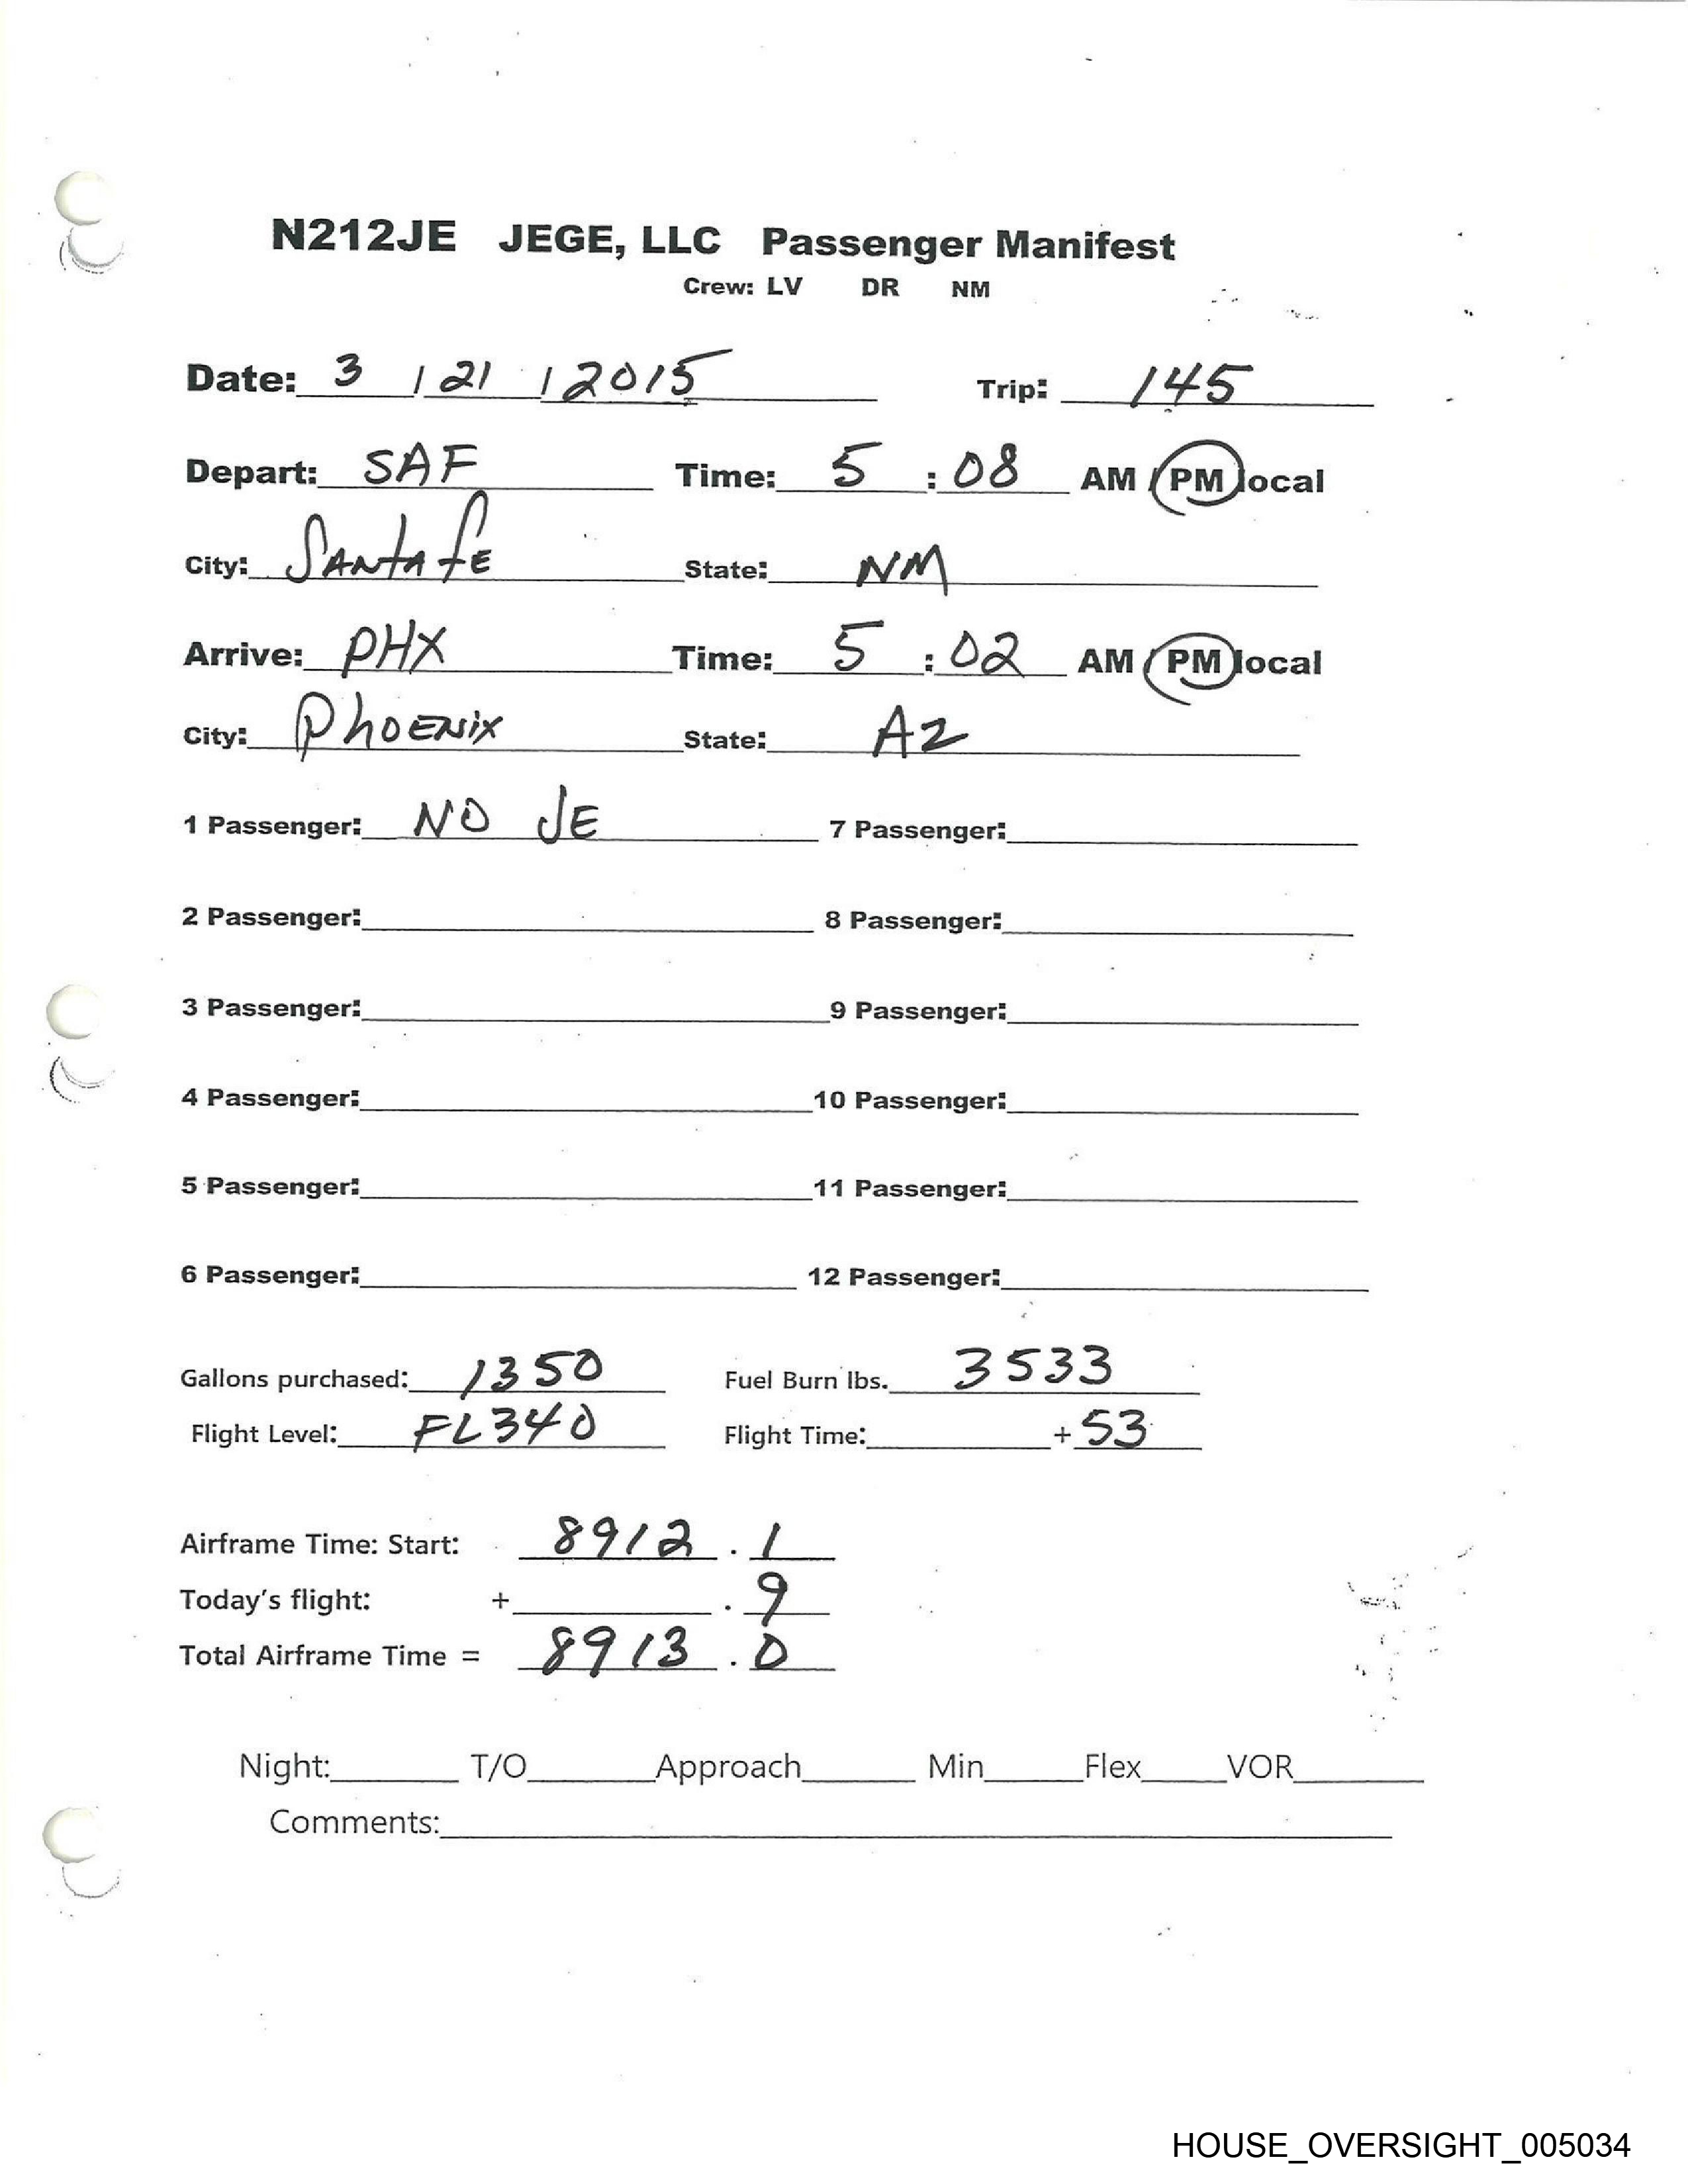 N212JE JEGE, LLC Passenger Manifest
Crew: LV DR NM
Date: 3 / 21 / 2015 Trip: 145
Depart: SAF Time: 5 : 08 AM / PM local
City: Santa Fe State: NM
Arrive: PHX Time: 5 : 02 AM / PM local
City: Phoenix State: AZ
1 Passenger: NO JE 7 Passenger:
2 Passenger: 8 Passenger:
3 Passenger: 9 Passenger:
4 Passenger: 10 Passenger:
5 Passenger: 11 Passenger:
6 Passenger: 12 Passenger:
Gallons purchased: 1350 Fuel Burn lbs. 3533
Flight Level: FL340 Flight Time: + 53
Airframe Time: Start: 8912 . 1
Today's flight: + . 9
Total Airframe Time = 8913 . 0
Night: T/O Approach Min Flex VOR
Comments:
HOUSE_OVERSIGHT_005034